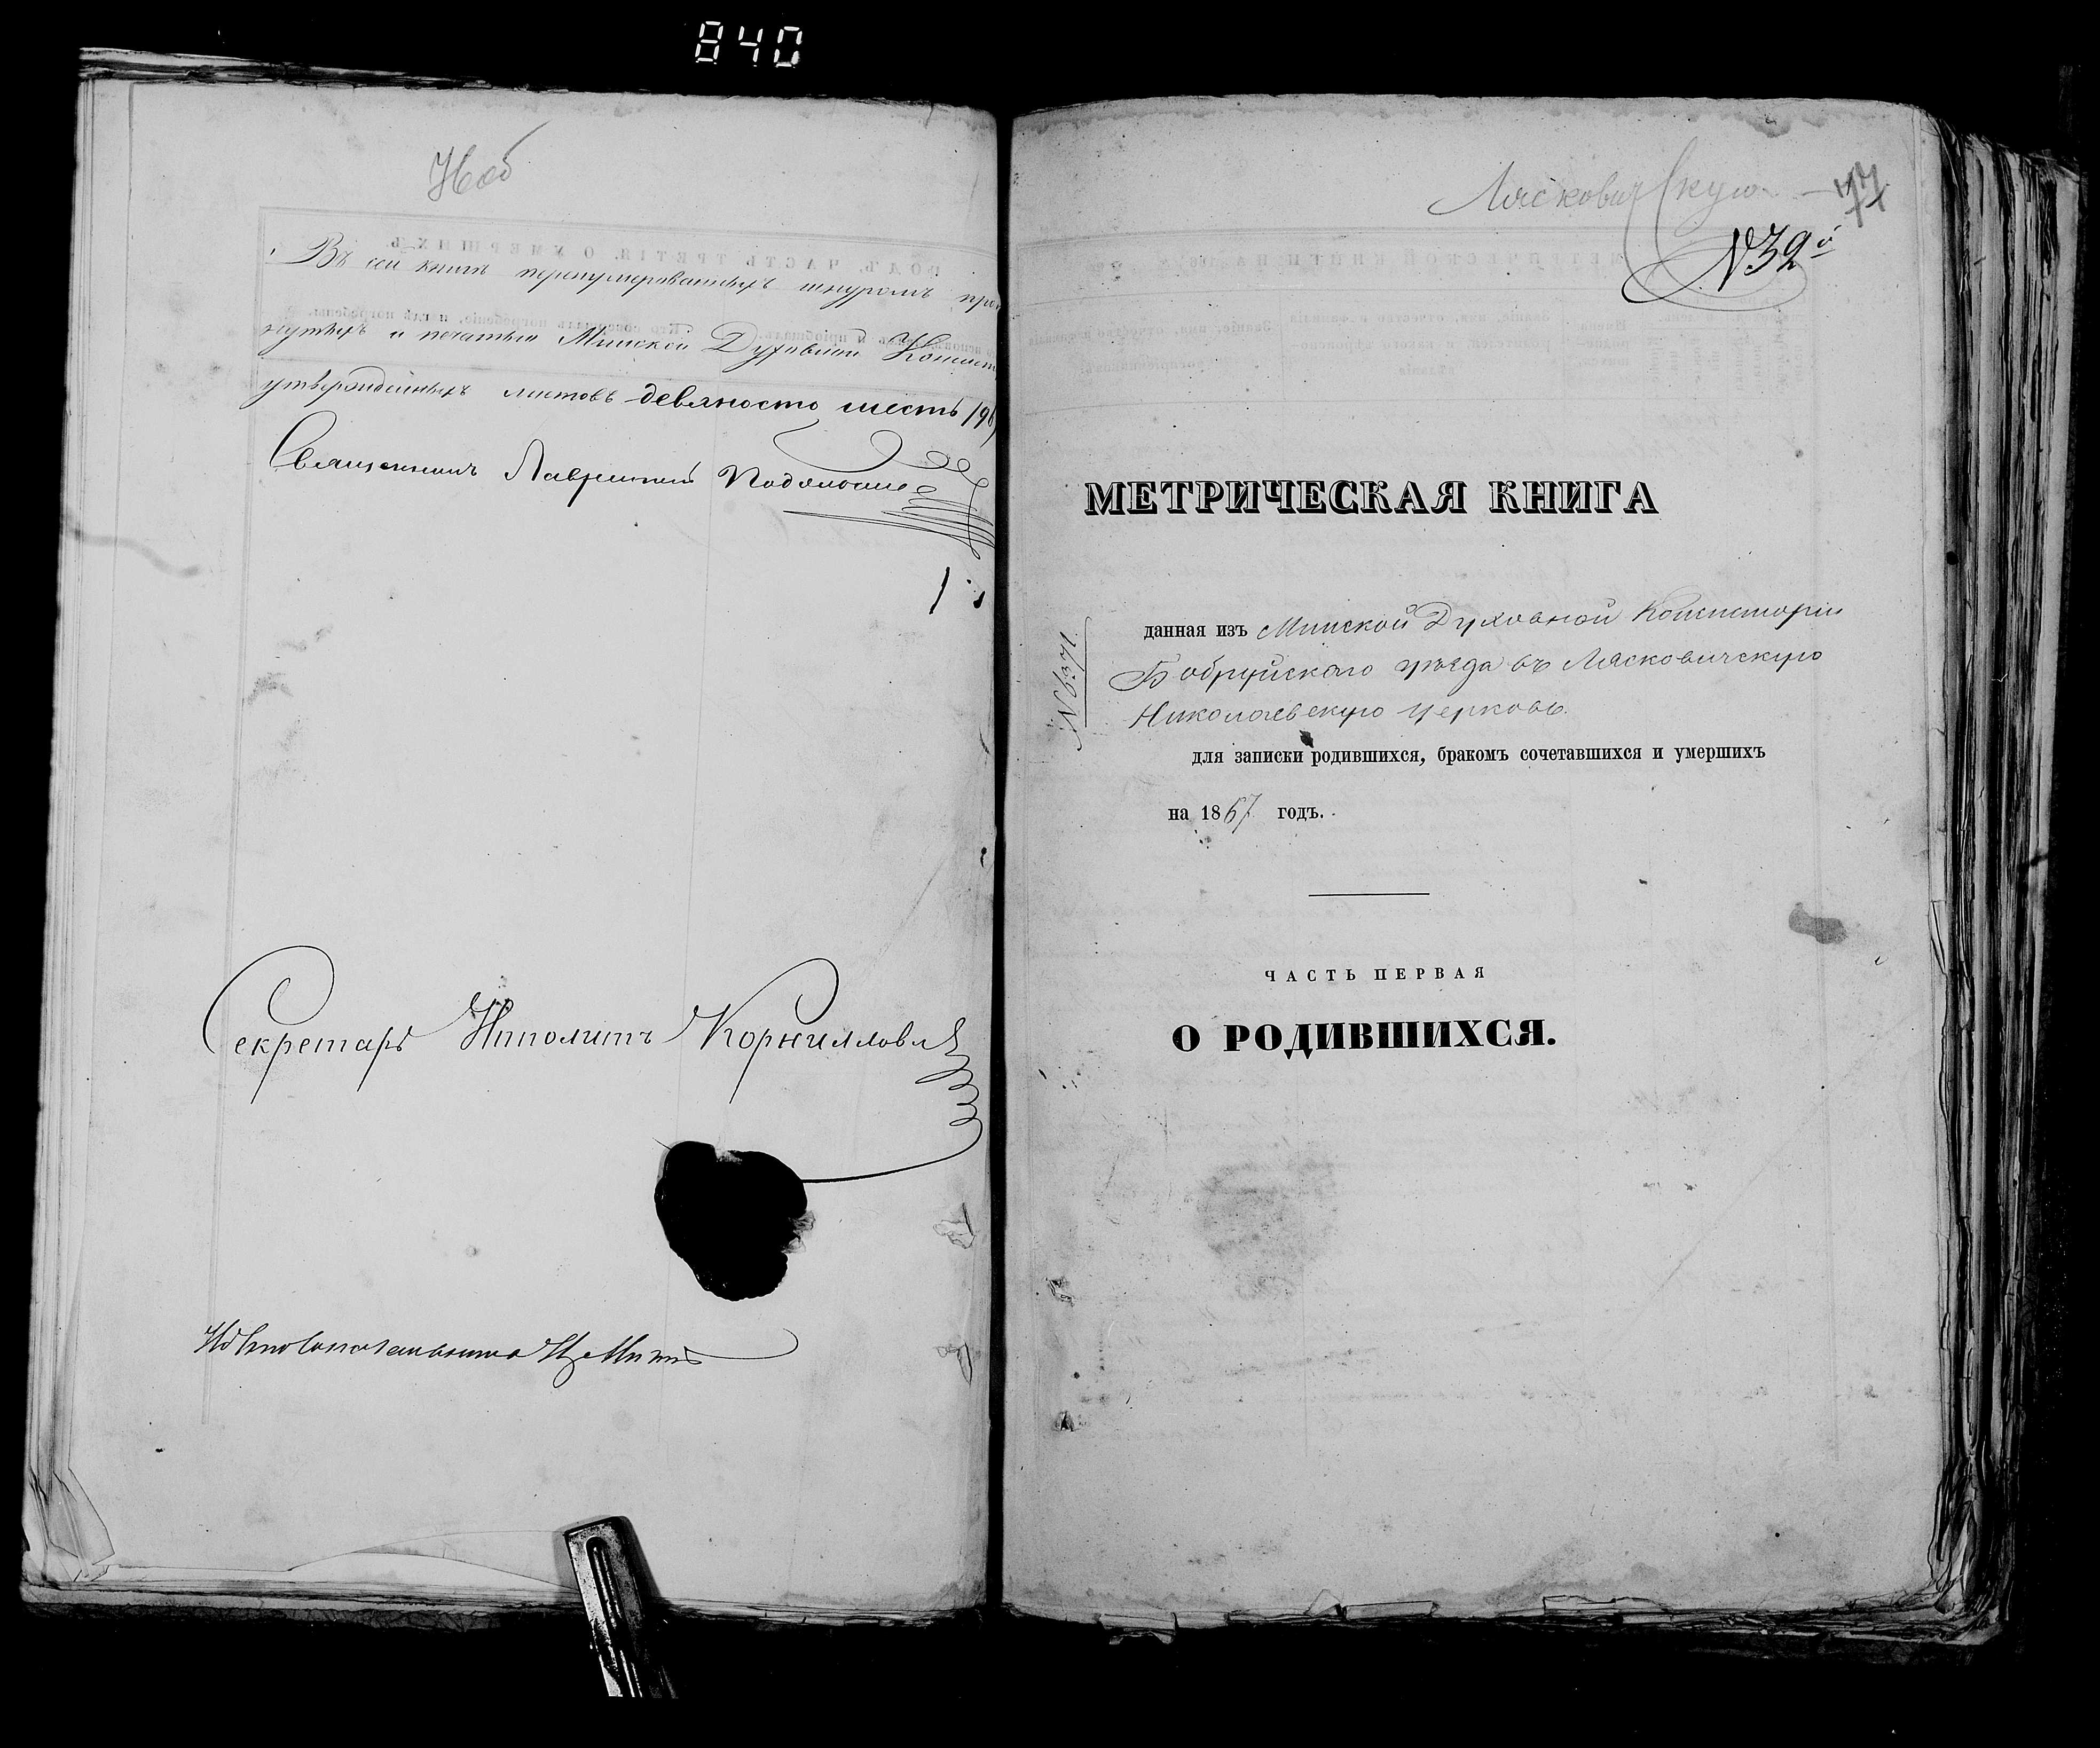 840
Въ сей книгѣ перенумерованныхъ шнуромъ про
нутыхъ и печатью Минской Духовной Консист
утвержденныхъ листовъ девяносто шесть /96/
Священникъ Лаврентій
Секретарь Ипполитъ
Лясковичскую — 77
№ 32й
МЕТРИЧЕСКАЯ КНИГА
№ 6371.
данная изъ Минской Духовной Консисторіи
Бобруйскаго уѣзда въ Лясковичскую
Николаевскую церковь.
для записки родившихся, бракомъ сочетавшихся и умершихъ
на 1867 годъ.
ЧАСТЬ ПЕРВАЯ
О РОДИВШИХСЯ.